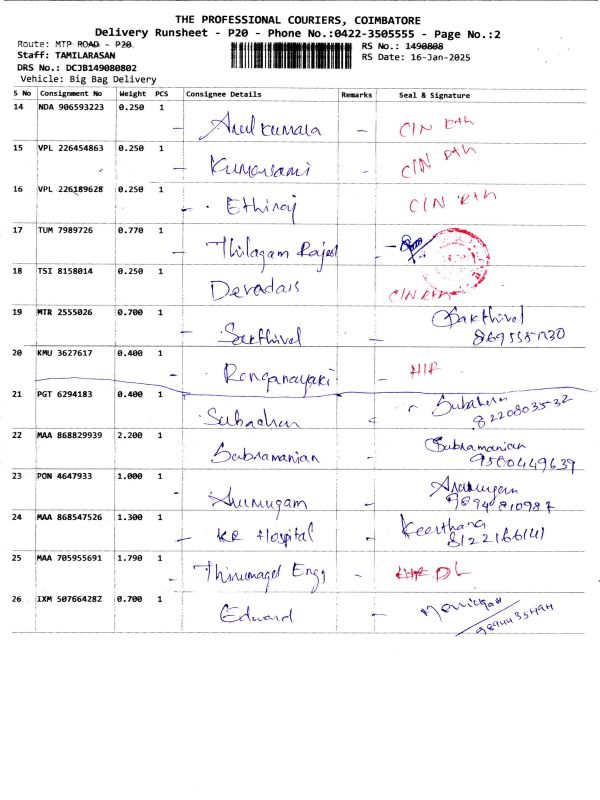 THE PROFESSIONAL COURIERS, COIMBATORE
Delivery Runsheet - P20 - Phone No.:0422-3505555 - Page No.:2
Route: MTP ROAD - P20
Staff: TAMILARASAN
DRS No.: DCJB149080802
Vehicle: Big Bag Delivery
RS No.: 1490808
RS Date: 16-Jan-2025
S No Consignment No Weight PCS Consignee Details Remarks Seal & Signature
14 NDA 906593223 0.250 1 Arulkumara CIN Rth
15 VPL 226454863 0.250 1 Kumarsami CIN Rth
16 VPL 226189628 0.250 1 Ethiraj CIN Rth
17 TUM 7989726 0.770 1 Thilagam Rajesh
18 TSI 8158014 0.250 1 Devadais CIN Rth
19 MTR 2555026 0.700 1 Sakthivel Sakthivel
20 KMU 3627617 0.400 1 Ranganayaki
21 PGT 6294183 0.400 1
8220803532
22 MAA 868829939 2.200 1 Subramanian Subramanian
9500449639
23 PON 4647933 1.000 1 Arumugam Arumugam
9894810987
24 MAA 868547526 1.300 1 KR Hospital Keerthana
8122166141
25 MAA 705955691 1.790 1 Thirumagal Engg DL
26 IXM 507664282 0.700 1 Edward
9894435494